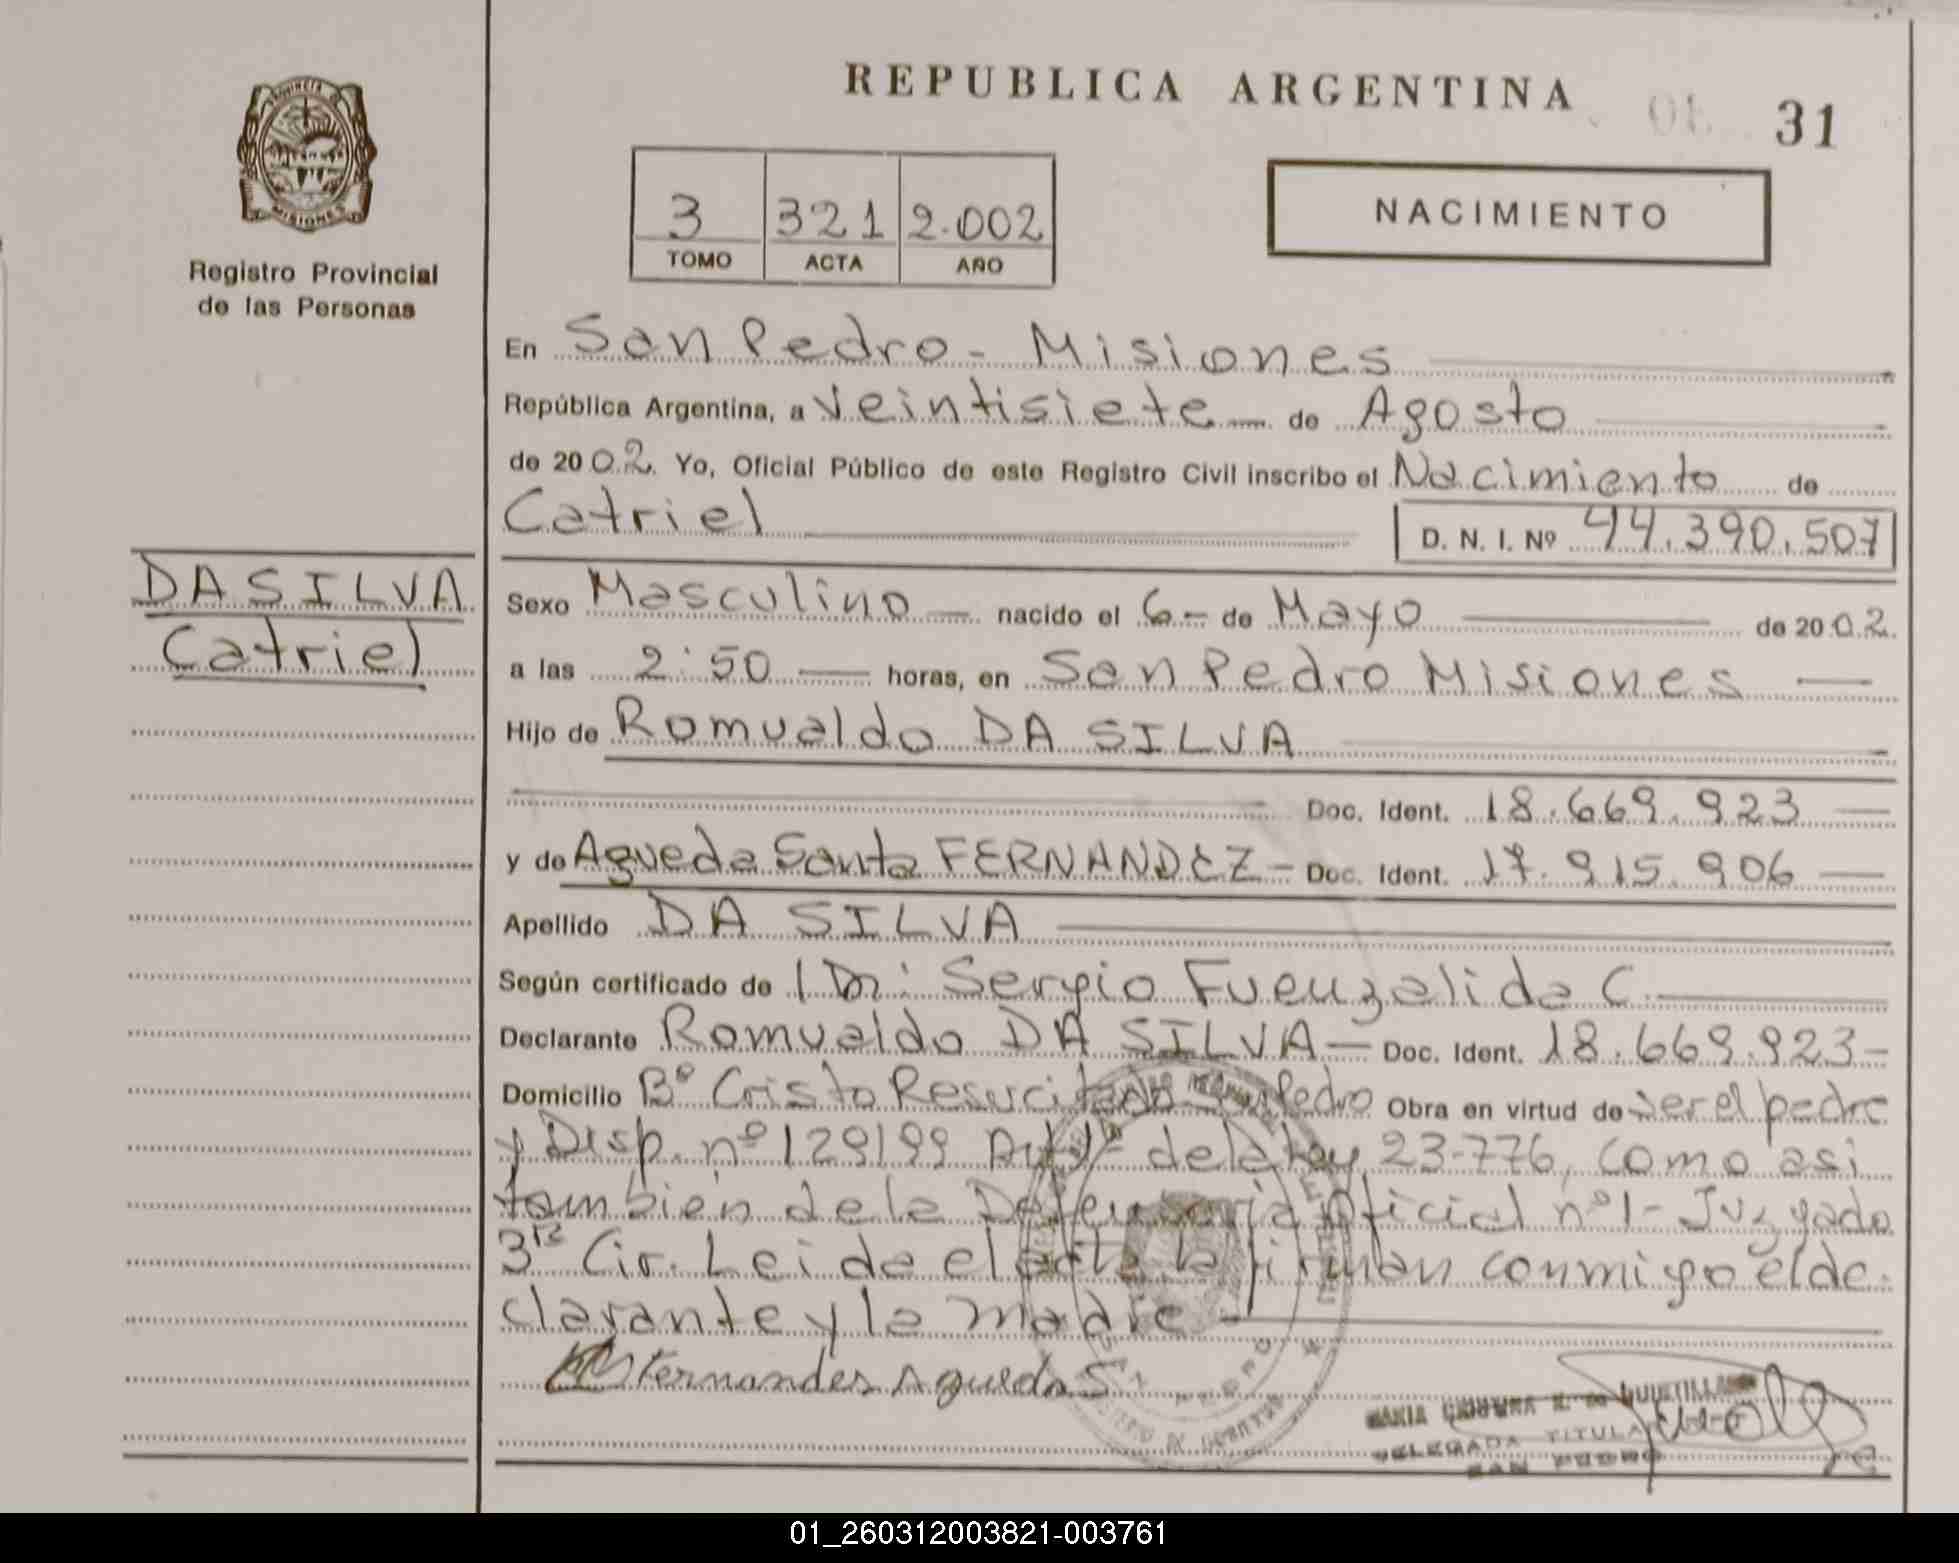 REPUBLICA ARGENTINA
31
PROVINCIA DE
MISIONES
Registro Provincial
de las Personas
3 321 2.002
TOMO ACTA AÑO
NACIMIENTO
En San Pedro - Misiones
República Argentina, a veintisiete de Agosto
de 2002. Yo, Oficial Público de este Registro Civil inscribo el Nacimiento de
Catriel
D. N. I. Nº 44.390.507
DA SILVA
Catriel
Sexo Masculino nacido el 6 - de Mayo de 2002.
a las 2:50 horas, en San Pedro Misiones
Hijo de Romualdo DA SILVA
Doc. Ident. 18.669.923
y de Agueda Santa FERNANDEZ - Doc. Ident. 17.915.906
Apellido DA SILVA
Según certificado de Sergio Fuenzalida C.
Declarante Romualdo DA SILVA - Doc. Ident. 18.669.923 -
Domicilio Bº Cristo Resucitado San Pedro Obra en virtud de ser el padre
y Disp. nº 129/99 de la Ley 23-776, como asi
tambien de la Defensoria Oficial nº 1 - Juzgado
3ra Cir. Leida el acta la firman conmigo el de
clarante y la madre -
Fernandes Agueda S.
DELEGADA TITULAR
SAN PEDRO
01_260312003821-003761